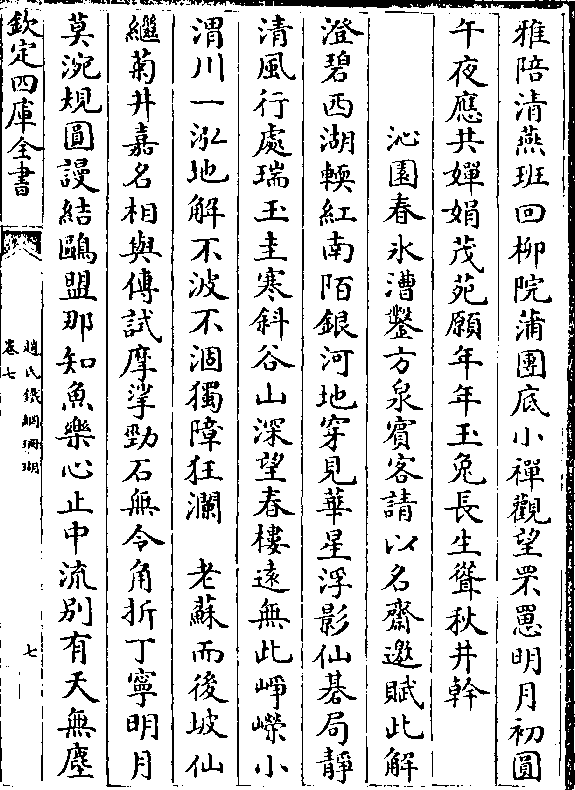 雅陪清燕班回柳院蒲團底小禪觀望罘罳明月初圓
午夜應共嬋娟茂苑願年年玉兔長生聳秋井幹
沁園春氷漕鑿方泉賓客請以名齋邀賦此解
澄碧西湖輭紅南陌銀河地穿見華星浮影仙棊局靜
清風行處瑞玉圭寒斜谷山深望春樓遠無此崢嶸小
渭川一泓地解不波不涸獨障狂瀾　老蘇而後坡仙
繼菊井嘉名相與傳試摩挲勁石無令角折丁寧明月
莫涴規圓謾結鷗盟那知魚樂心止中流别有天無塵
欽定四庫全書
趙氏鐵網珊瑚
卷七
七